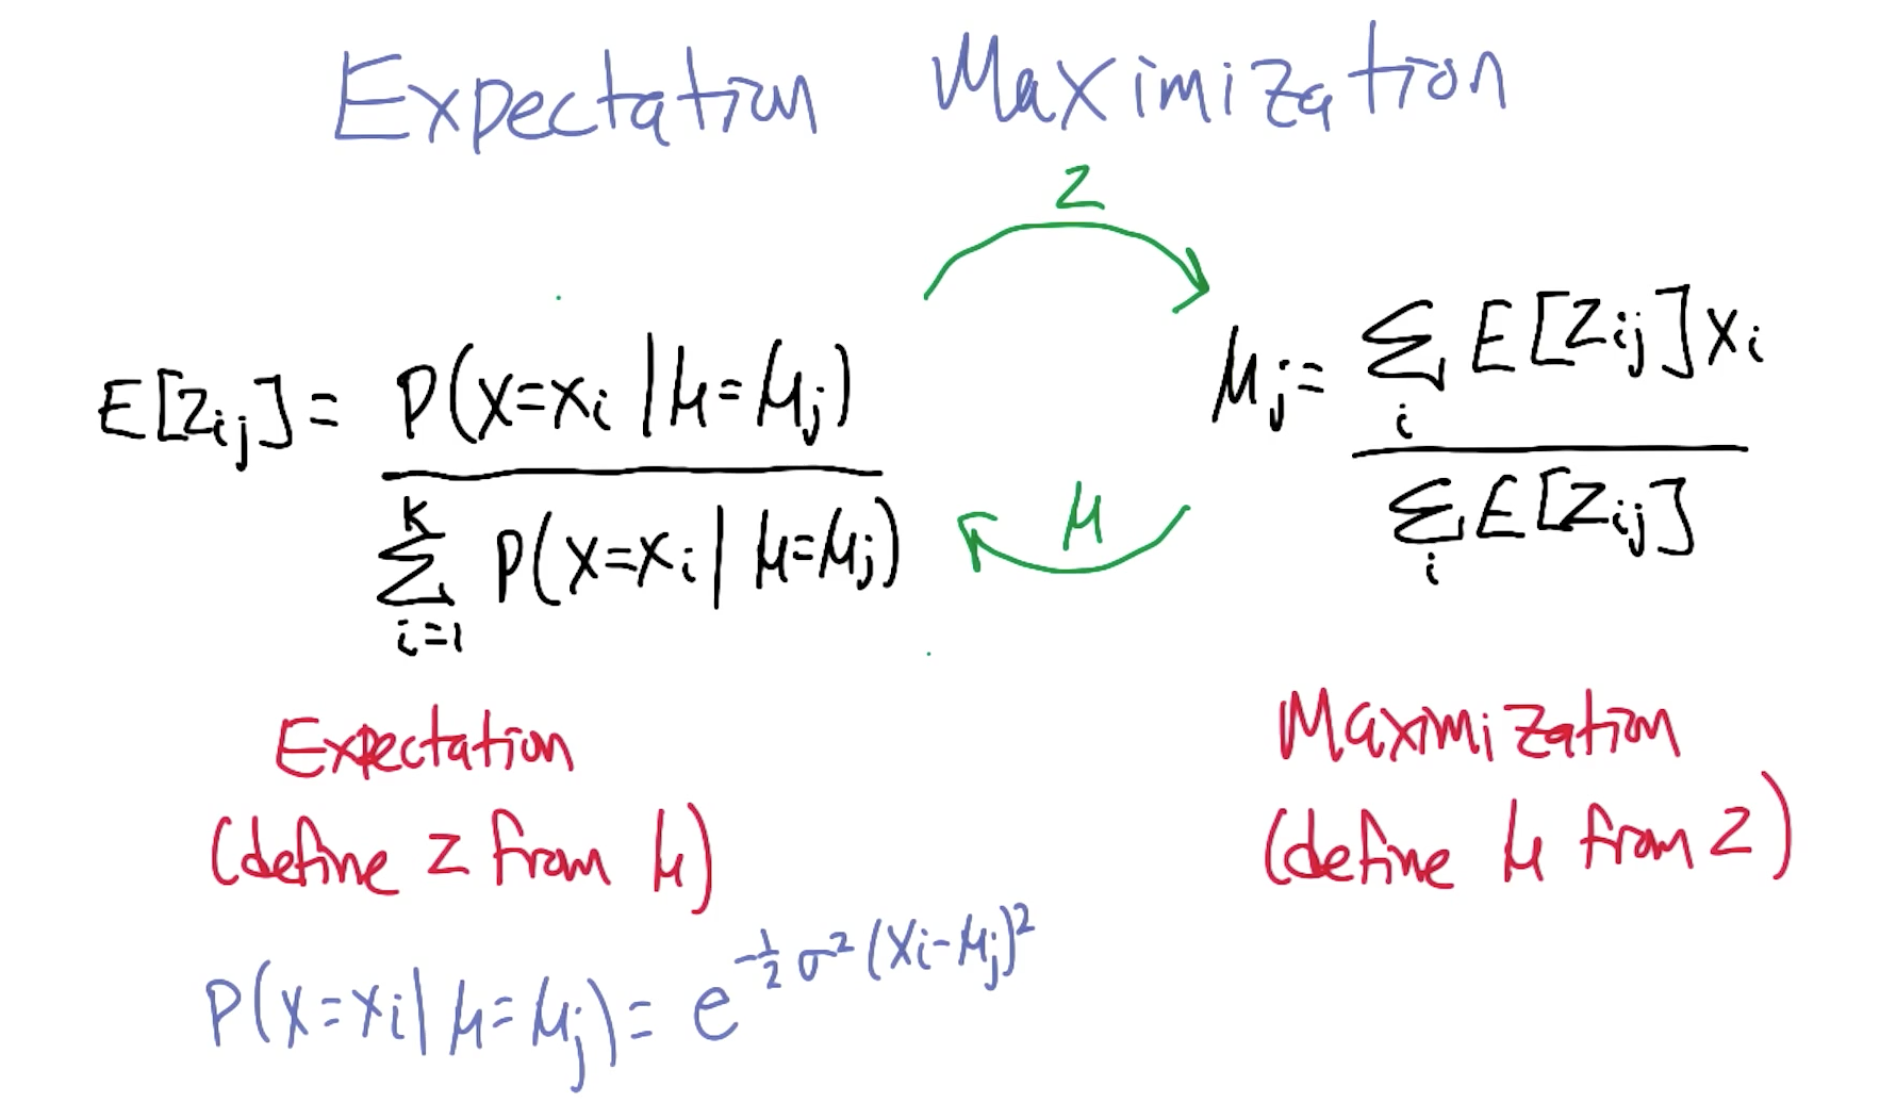 Expectation Maximization
Z
E[Zij] = P(X=xi | μ=μj) / Σ_{i=1}^{k} P(X=xi | μ=μj)
μj = Σ_i E[Zij] xi / Σ_i E[Zij]
μ
Expectation
(define Z from μ)
Maximization
(define μ from Z)
P(X=xi | μ=μj) = e^{-1/2 σ² (xi-μj)²}